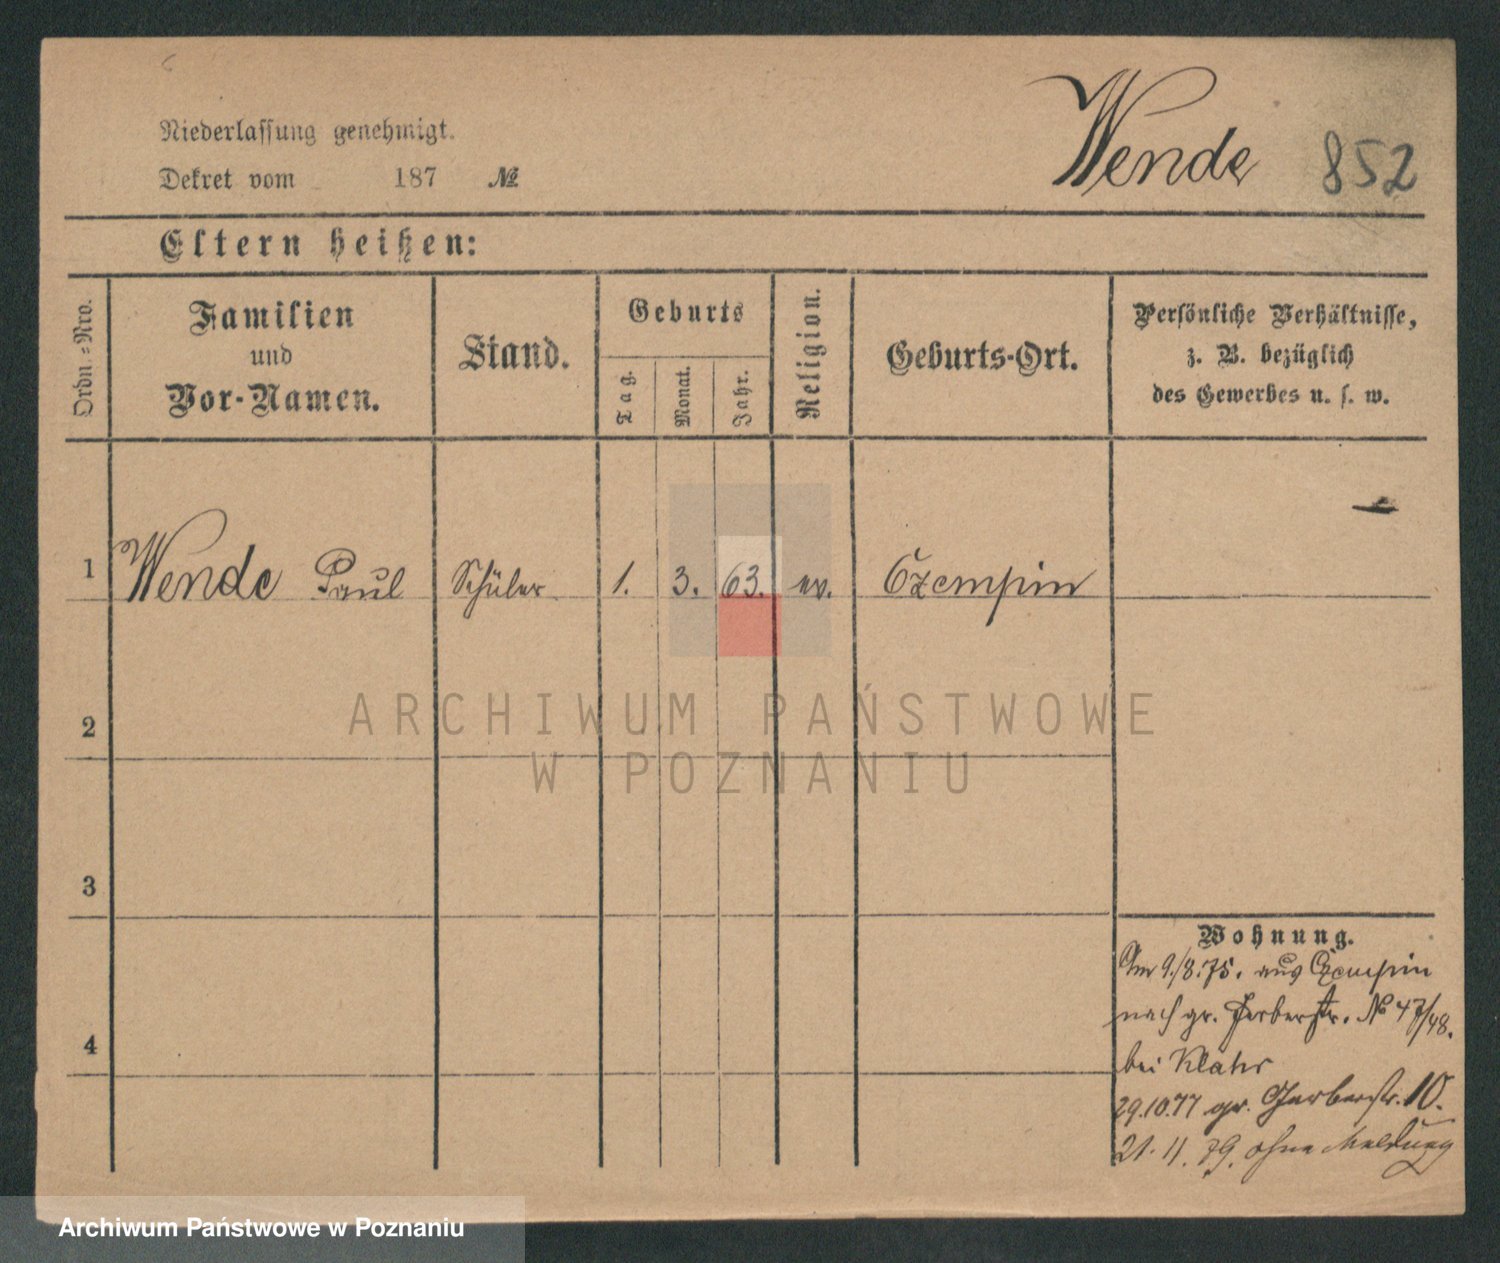 Wende 852
Niederlassung genehmigt.
Dekret vom 187 №
Eltern heißen:
Ordn=Nro.
Familien
und
Vor-Namen.
Stand.
Geburts
Tag.
Monat.
Jahr.
Religion.
Geburts-Ort.
Persönliche Verhältnisse,
z. B. bezüglich
des Gewerbes u. s. w.
1 Wende Paul Schüler 1. 3. 63. ev. Czempin
2
3
4
Wohnung.
Am 9./8.75. aus Czempin
nach gr. Gerberstr. No 47/48.
bei Klatz
29.10.77 gr. Gerberstr. 10.
21. 11. 79. ohne Meldung
ARCHIWUM PAŃSTWOWE
W POZNANIU
Archiwum Państwowe w Poznaniu